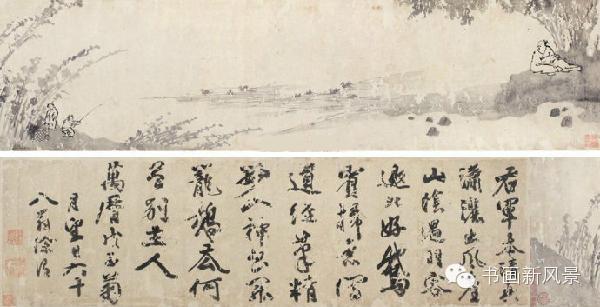 右軍本清真
瀟灑出風塵
山陰遇羽客
邀此好鵝
賓掃素寫
道經筆精
妙入神書罷
籠鵝去何
曾別主人
萬曆戊子菊
月望日八十
八翁徐
书画新风景